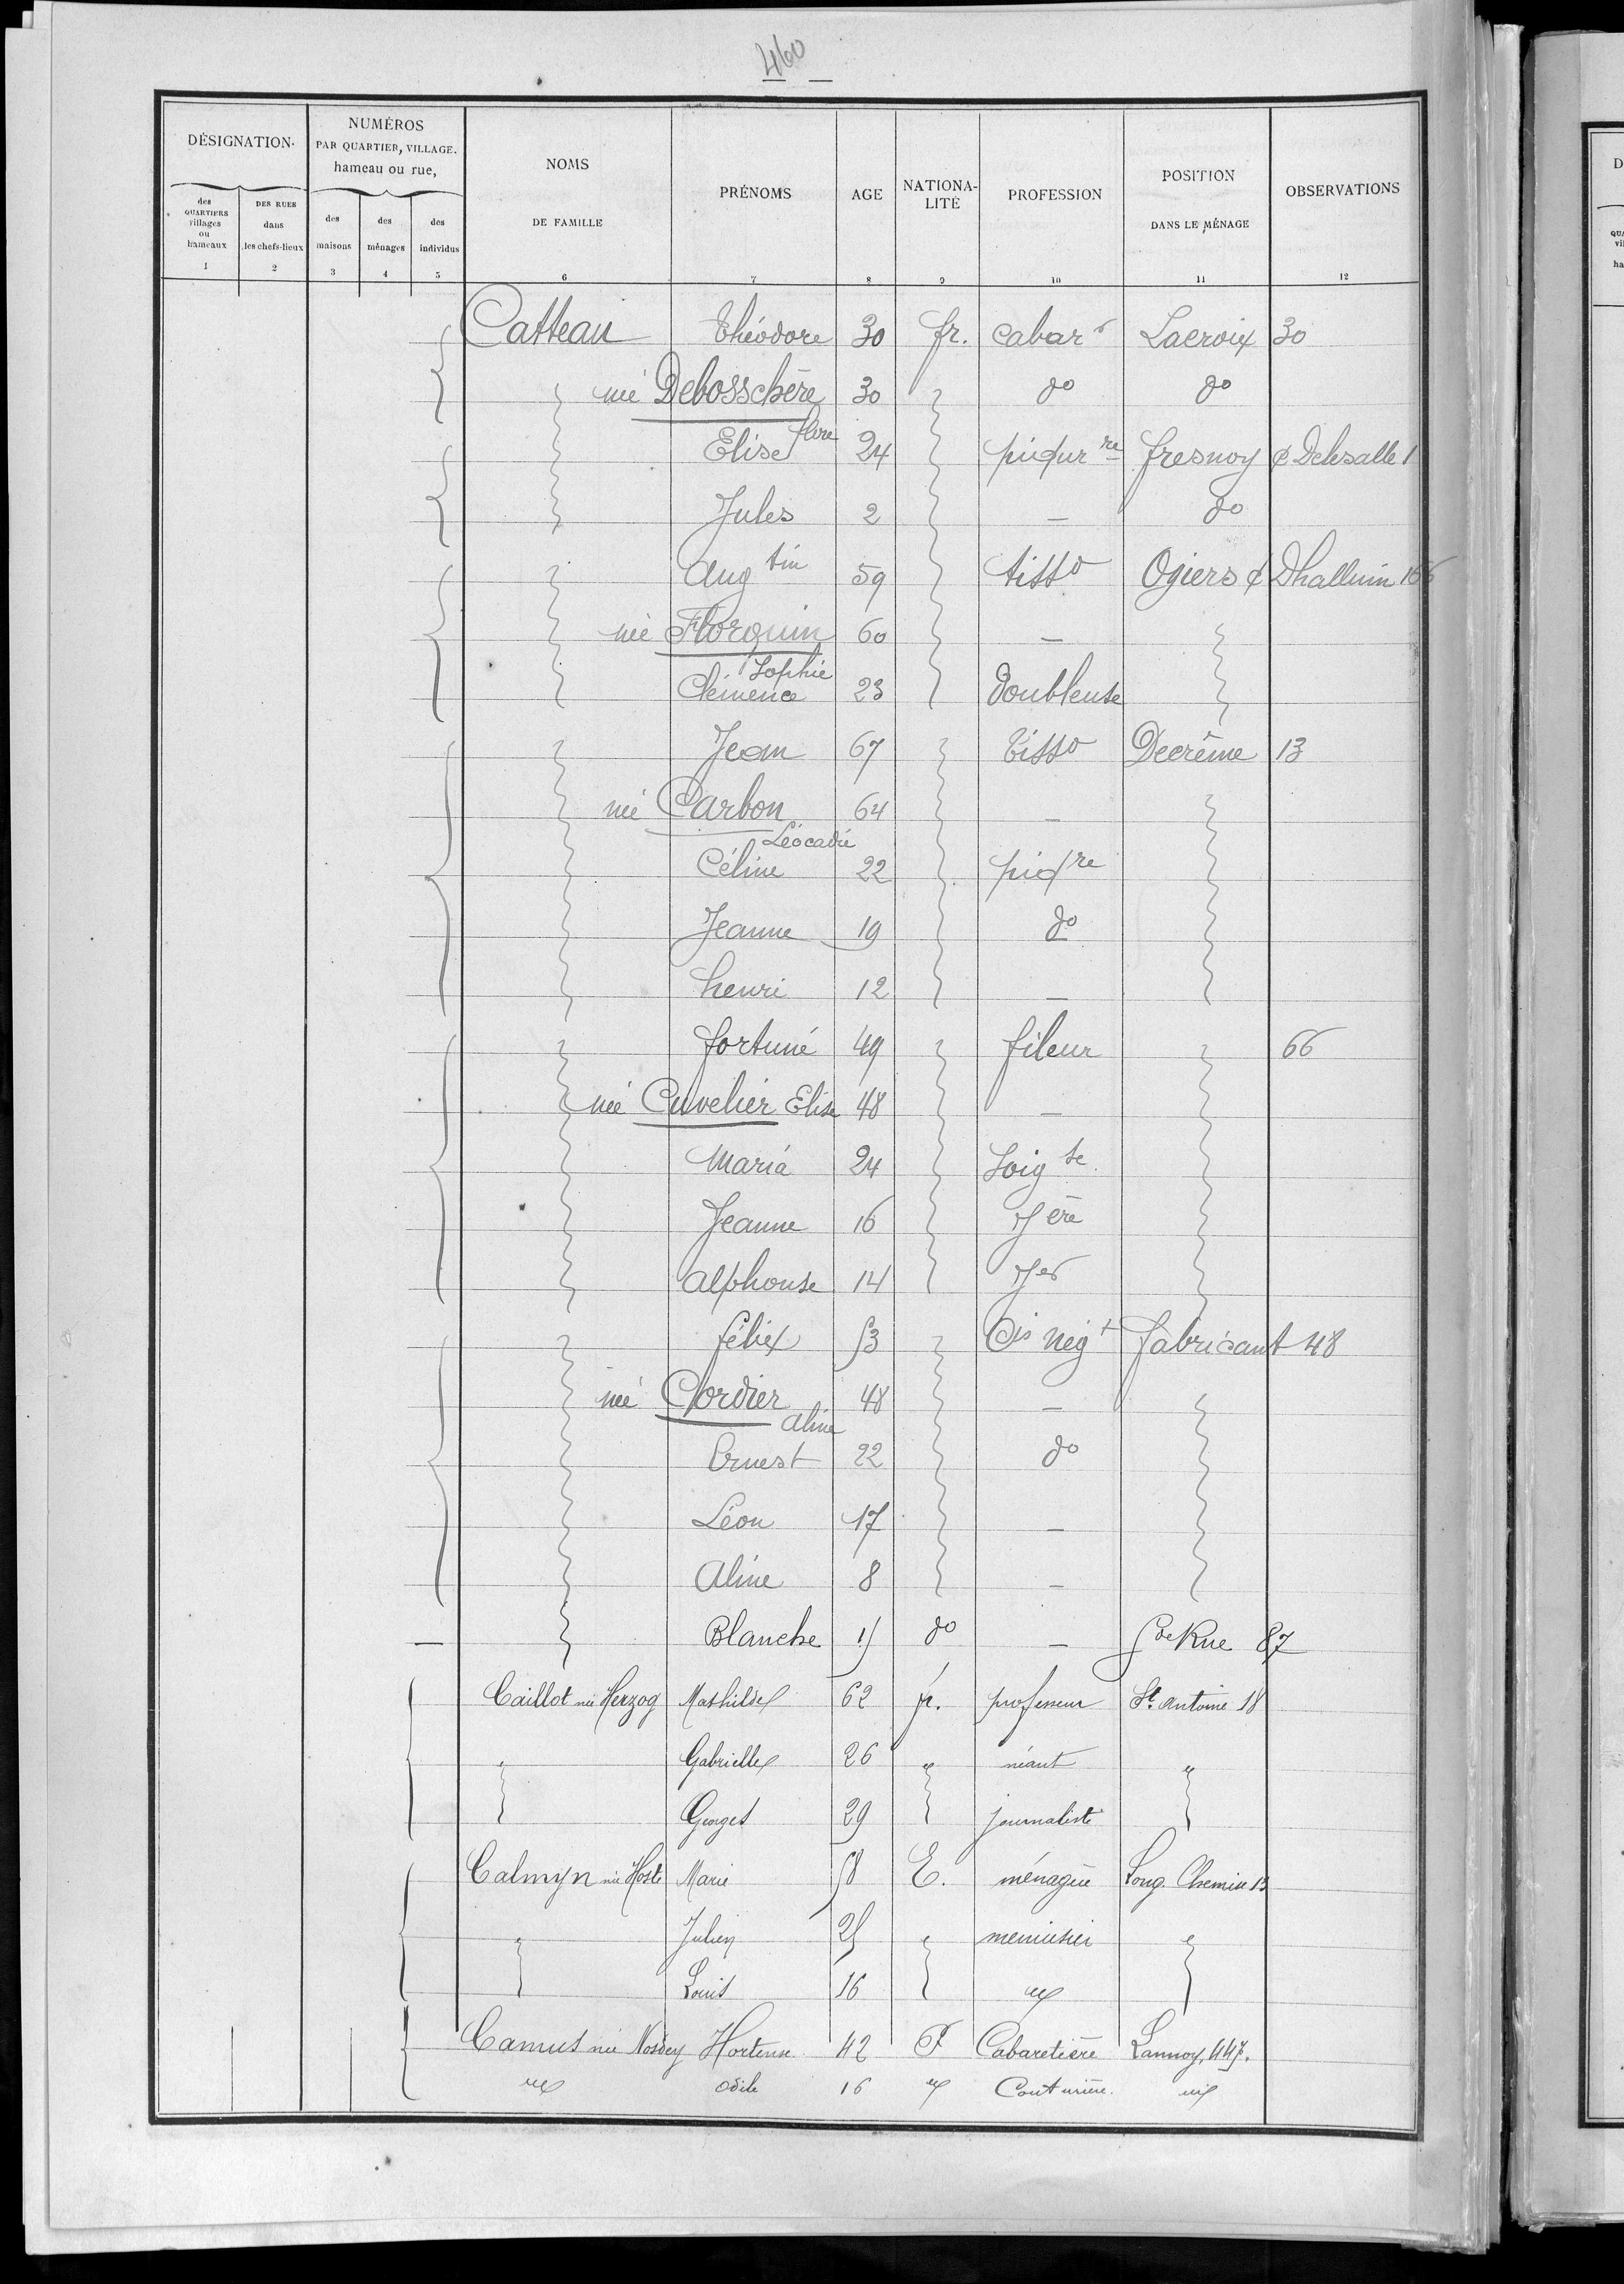 460
DÉSIGNATION
NUMÉROS
PAR QUARTIER, VILLAGE.
hameau ou rue,
NOMS
DE FAMILLE
PRÉNOMS
AGE
NATIONA-
LITÉ
PROFESSION
POSITION
DANS LE MÉNAGE
OBSERVATIONS
des
QUARTIERS
villages
ou
hameaux
DES RUES
dans
les chefs-lieux
des
maisons
des
ménages
des
individus
1 2 3 4 5 6 7 8 9 10 11 12
Catteau Théodore 30 fr. cabar r Lacroix 30
née Debosschère 30 do do
Flore
Elise 24 piqur re fresnoy c Delesalle 1
Jules 2 — do
Aug tin 59 tisso Ogiers c Dhalluin 166
née Florquin 60 —
Sophie
Clémence 23 doubleuse
Jean 67 tisso Decrême 13
née Carbon 64 —
Léocadie
Céline 22 piq re
Jeanne 19 do
henri 12 —
fortuné 49 fileur 66
née Cuvelier Elise 48 —
Maria 24 Soig se
Jeanne 16 J ère
Alphonse 14 J er
félix 53 Cis nég t fabricant 48
née Cordier 48 —
Aline
Ernest 22 do
Léon 17 —
Aline 8 —
— Blanche 15 do — Gde Rue 87
Caillot née Herzog Mathilde 62 fr. professeur St. Antoine 18
" Gabrielle 26 " néant "
Georges 29 journaliste
Calmyn née Hoste Marie 58 E. ménagère Long. Chemise 13
" Julien 25 " menuisier "
Louis 16
Camus née Nosdey Hortense 42 F Cabaretière Lannoy, 447.
Odile 16 Couturière.